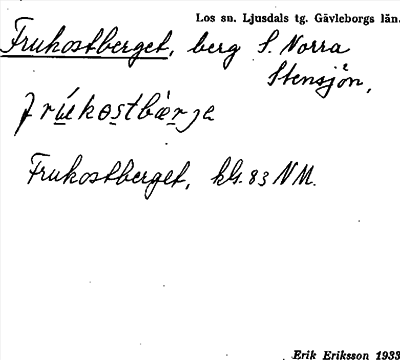 Los sn. Ljusdals tg. Gävleborgs län.
Frukostberget, berg S. Norra
Stensjön,
frúkostbærjə
Frukostberget, kbl. 83 NM.
Erik Eriksson 1933